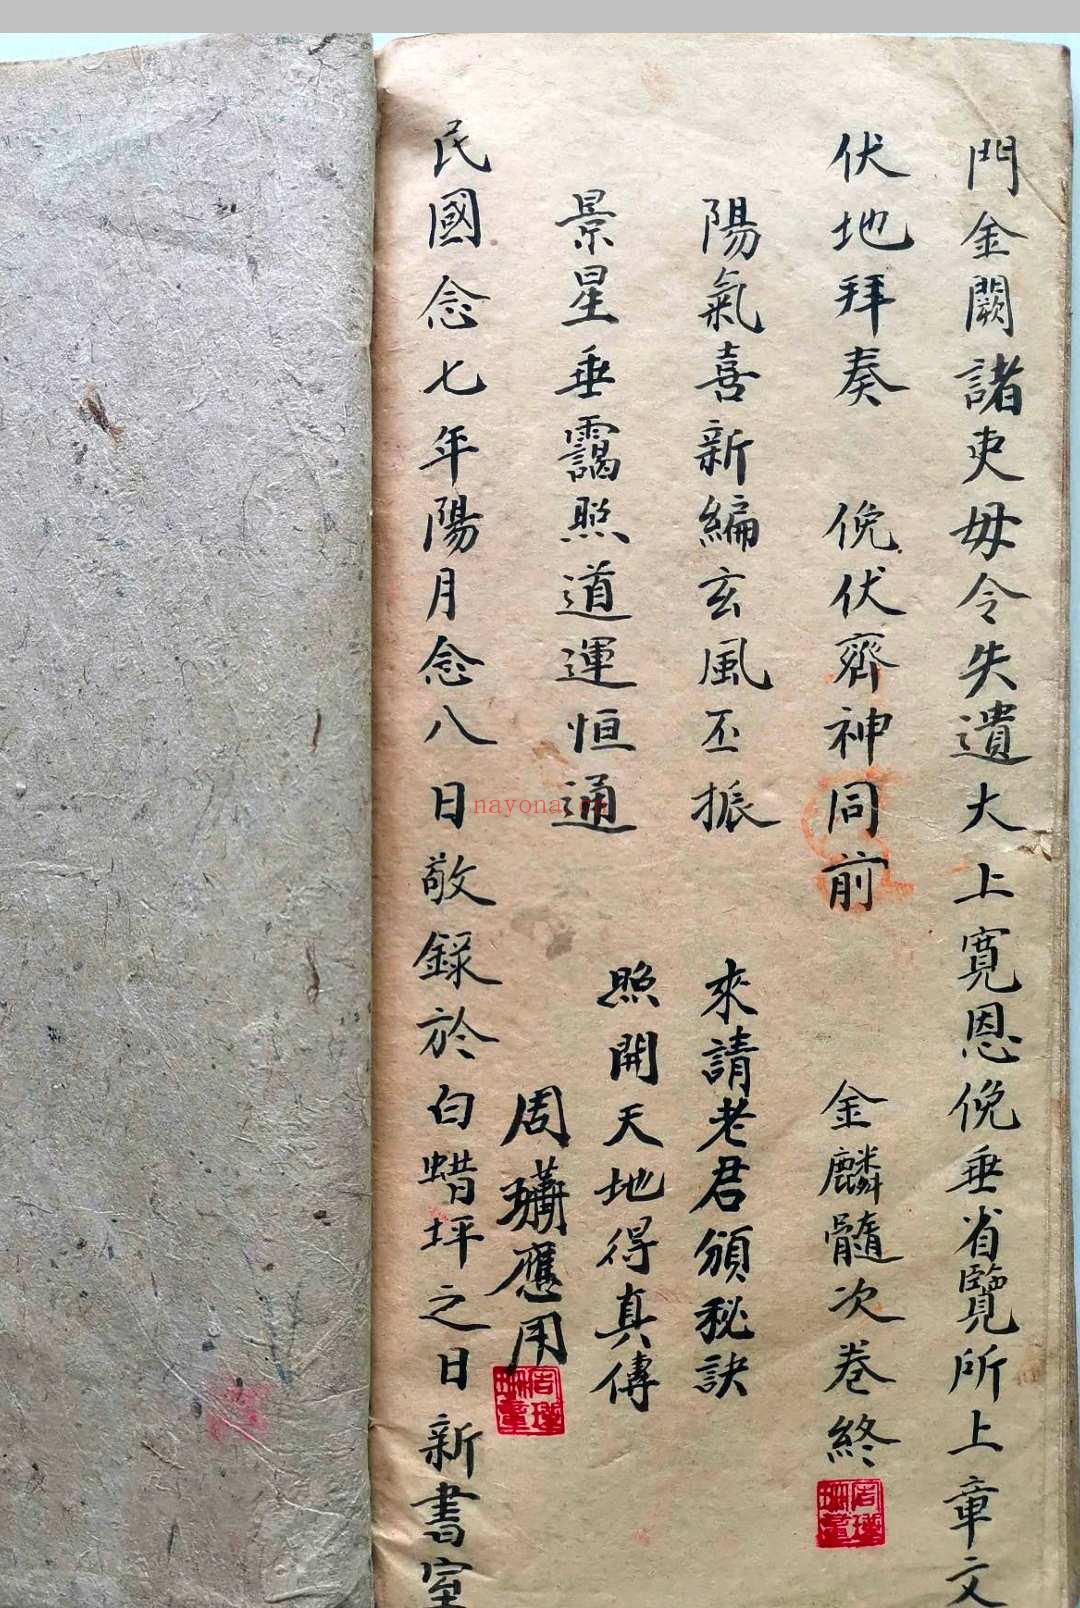 門金闕諸吏毋令失遺大上寬恩俛垂省覽所上章文
伏地拜奏 俛伏齊神同前 金麟髓次卷終
陽氣喜新編玄風丕振 來請老君頒秘訣
景星垂靄照道運恒通 照開天地得真傳
周 應用
民國念七年陽月念八日敬錄於白蜡坪之日新書室
nayona.cn